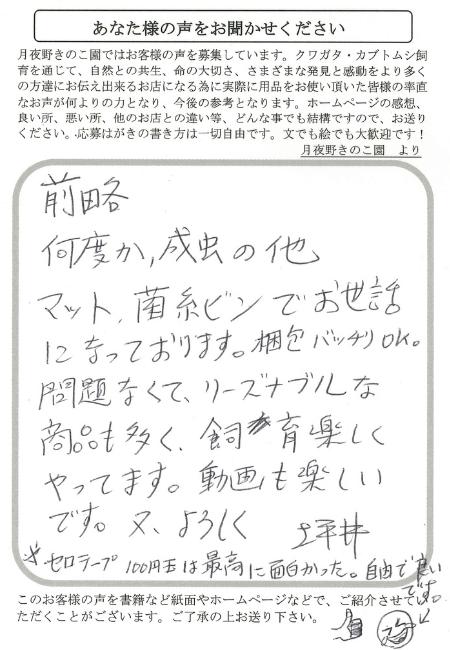 あなた様の声をお聞かせください
月夜野きのこ園ではお客様の声を募集しています。クワガタ・カブトムシ飼
育を通じて、自然との共生、命の大切さ、さまざまな発見と感動をより多く
の方達にお伝え出来るお店になる為に実際に用品をお使い頂いた皆様の率直
なお声が何よりの力となり、今後の参考となります。ホームページの感想、
良い所、悪い所、他のお店との違い等、どんな事でも結構ですので、お送り
ください。応募はがきの書き方は一切自由です。文でも絵でも大歓迎です！
月夜野きのこ園　より
前略
何度か,成虫の他
マット,菌糸ビンでお世話
になっております。梱包バッチリOK。
問題なくて、リーズナブルな
商品も多く、飼育楽しく
やってます。動画も楽しい
です。又、よろしく　坪井
*セロテープ 100円玉は最高に面白かった。自由で良い
です。
このお客様の声を書籍など紙面やホームページなどで、ご紹介させてい
ただくことがございます。ご了承の上お送り下さい。